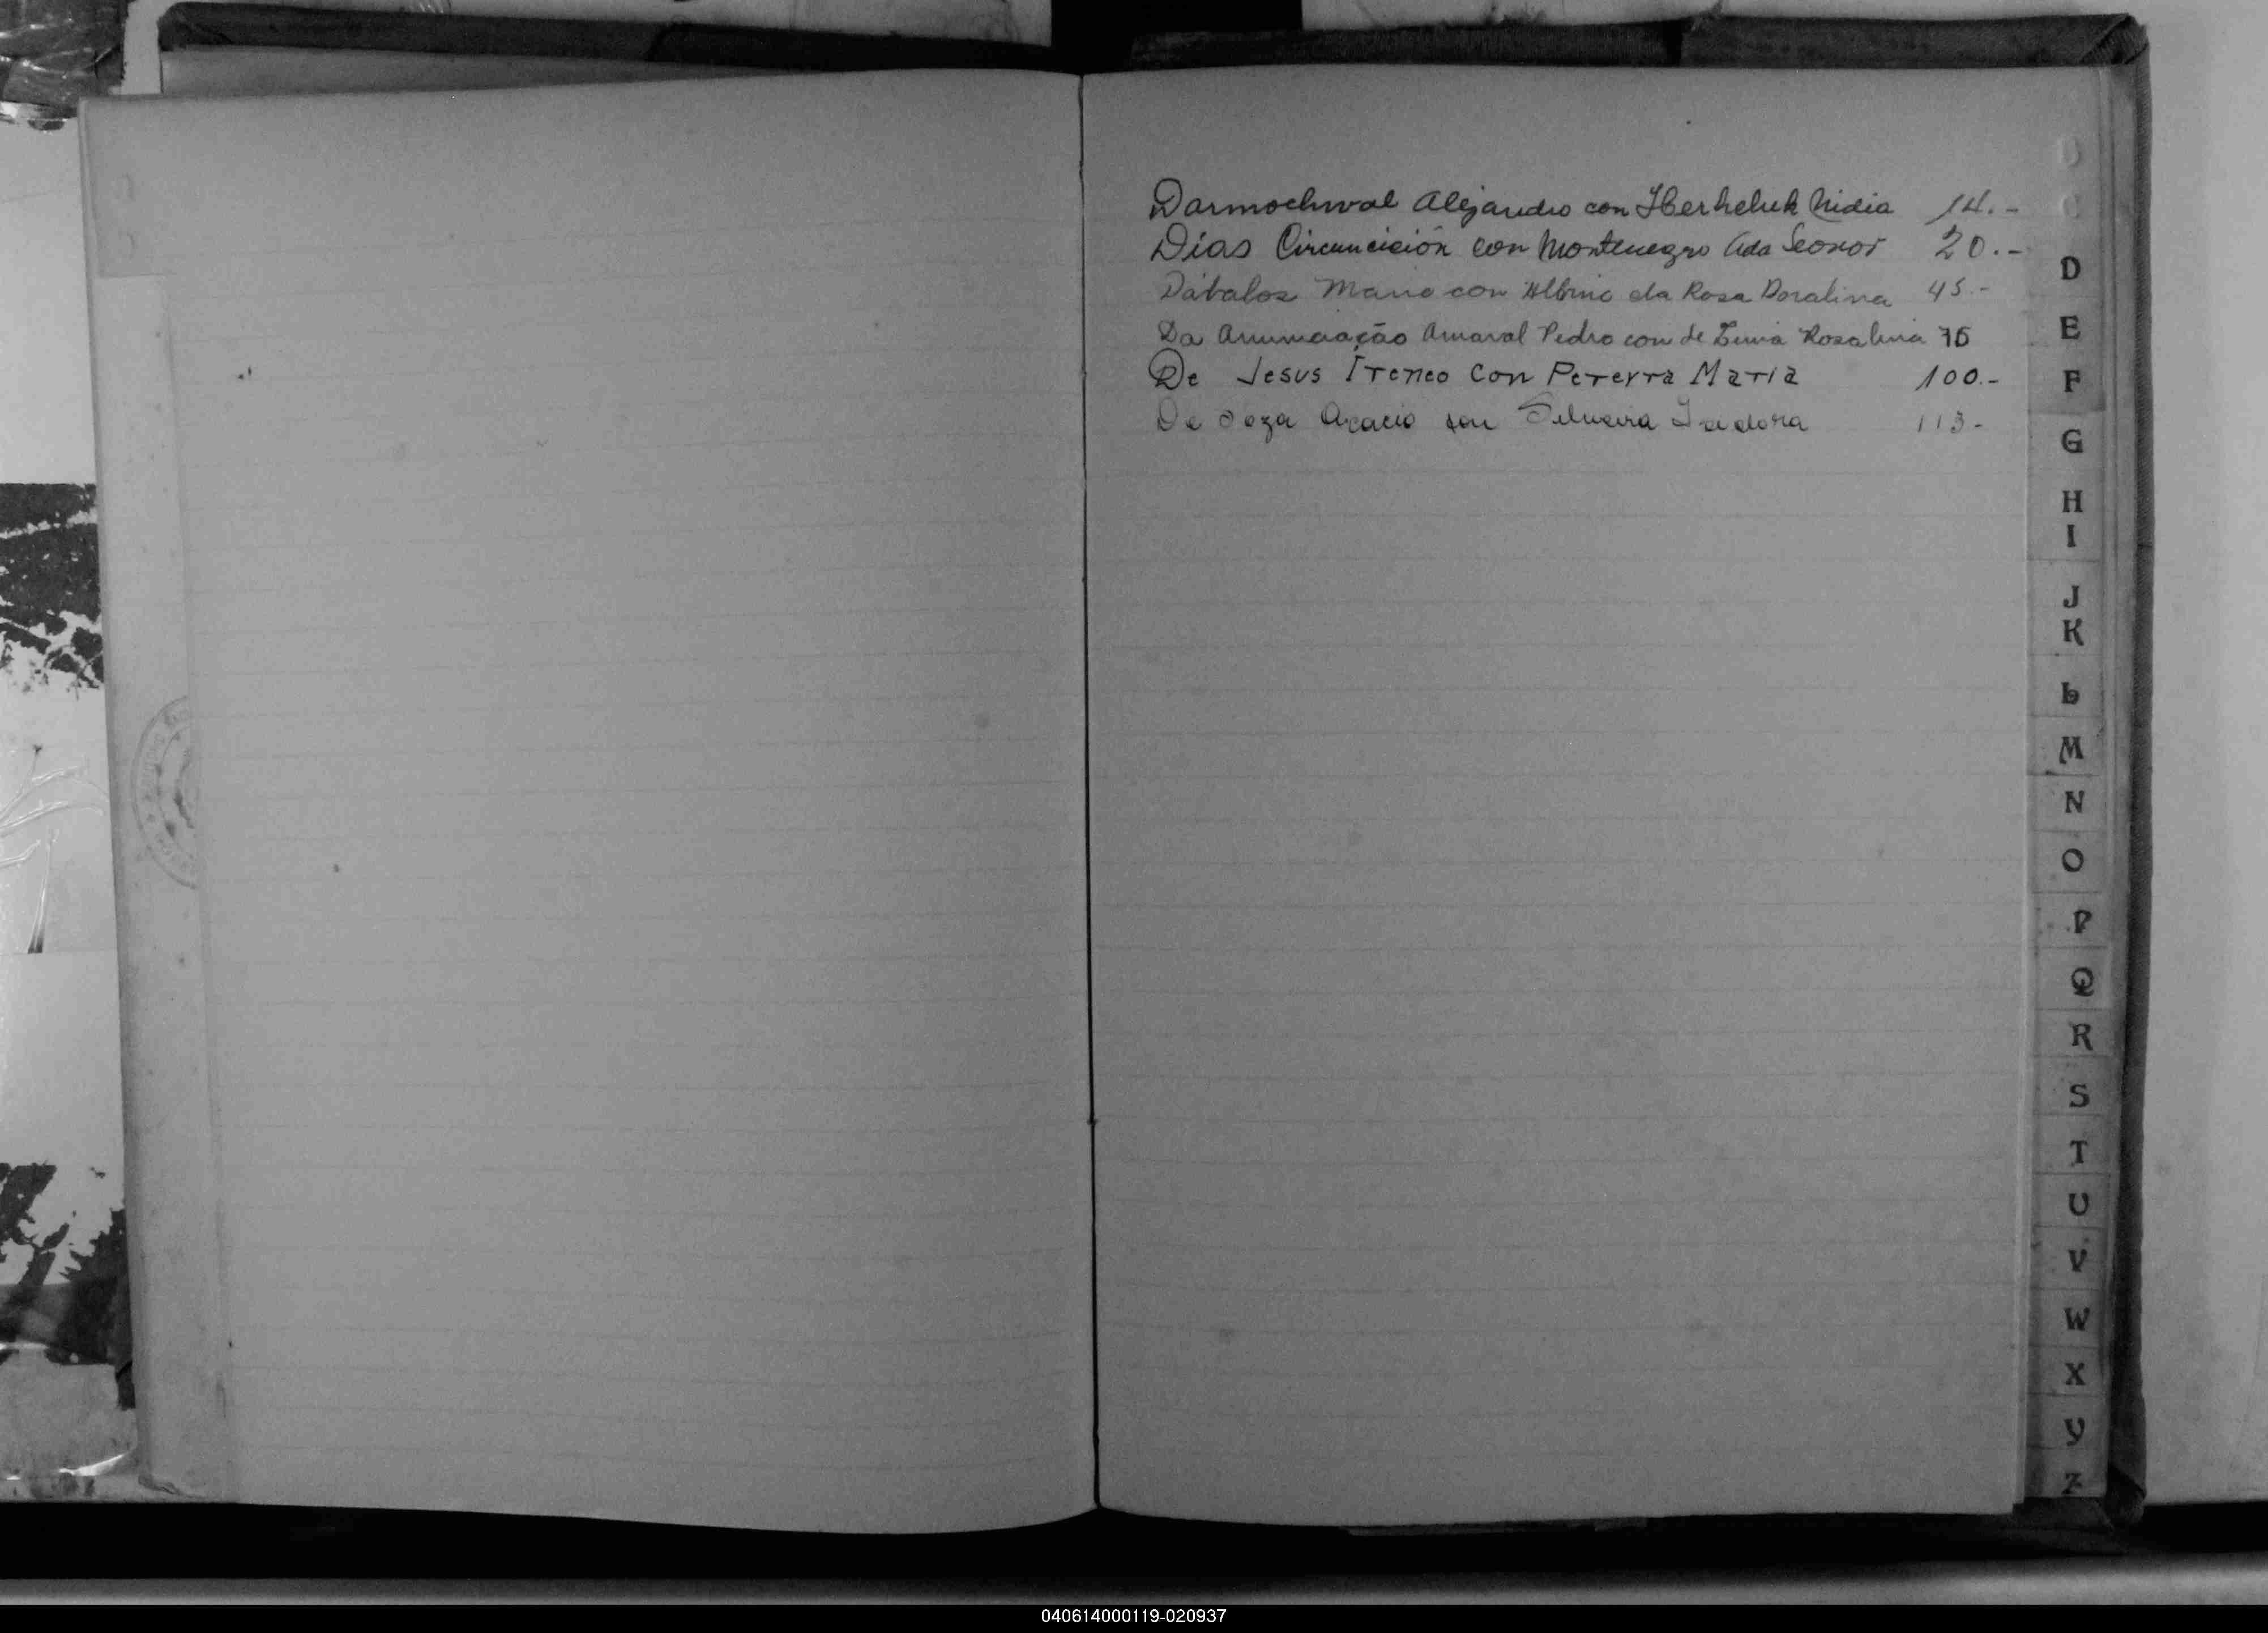 Darmochwal Alejandro con Herheluk Nidia 14.-
Días Circuncición con Montenegro Ada Leonor 20.-
Dábalos Mario con Albino da Rosa Doralina 45.-
Da Anunciação Amaral Pedro con de Lima Rosalina 76
De Jesus Ireneo con Pereyra Maria 100.-
De Soza Acacio con Silveira Isidora 113-
D
E
F
G
H
I
J
K
L
M
N
O
P
Q
R
S
T
U
V
W
X
Y
Z
040614000119-020937